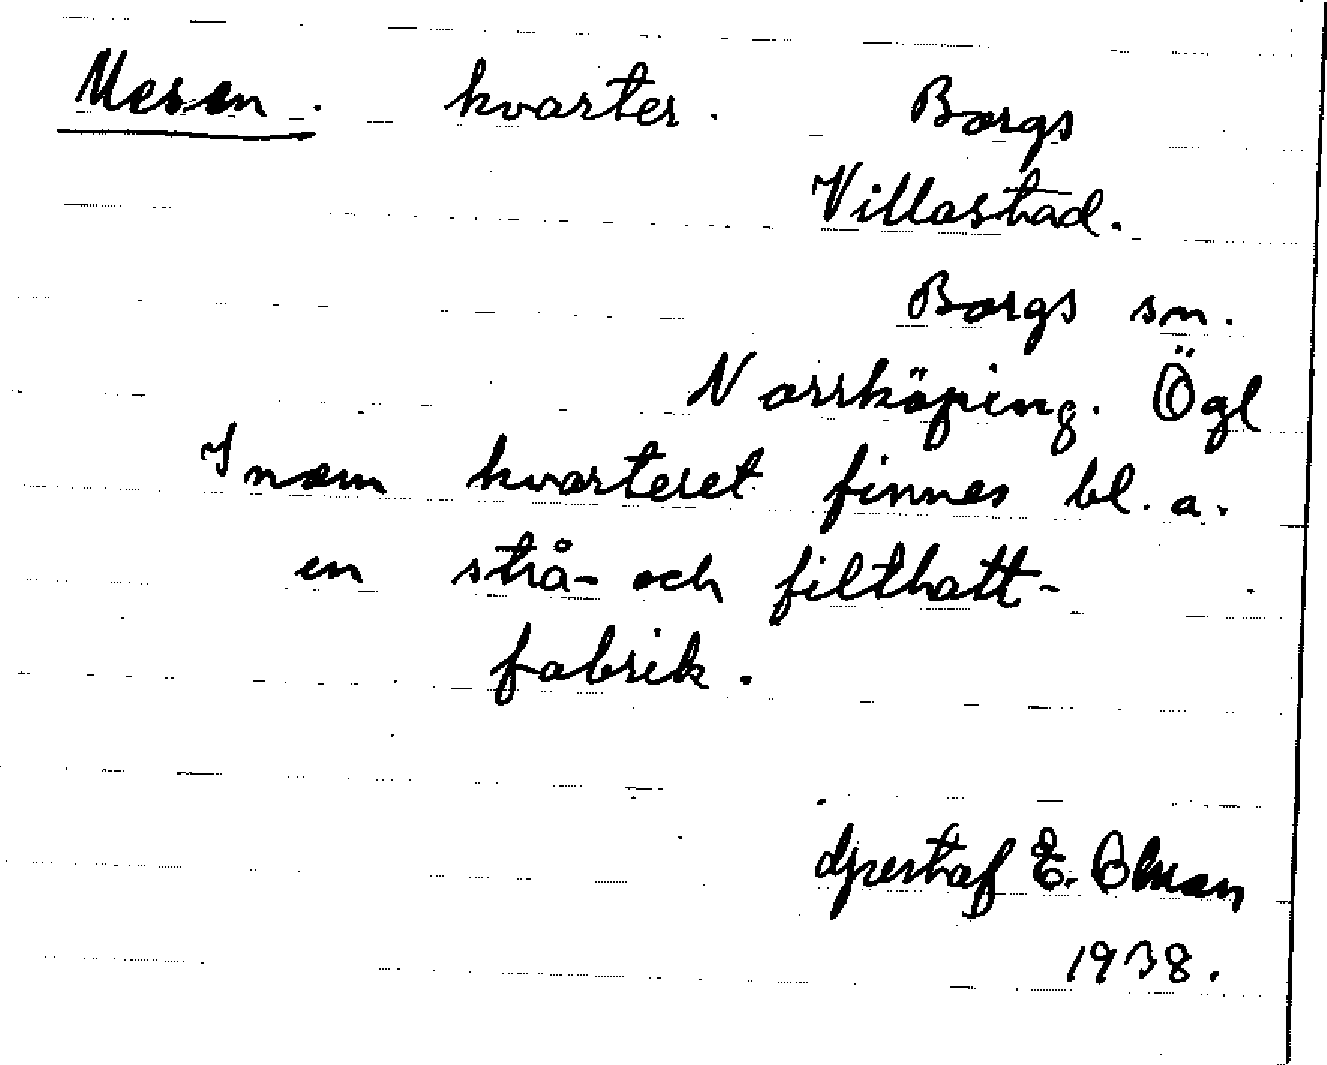 Mesen. kvarter. Borgs
Villastad.
Borgs sn.
Norrköping. Ögl
Inom kvarteret finnes bl. a.
en strå- och filthatt-
fabrik.
Gustaf E. Olman
1938.